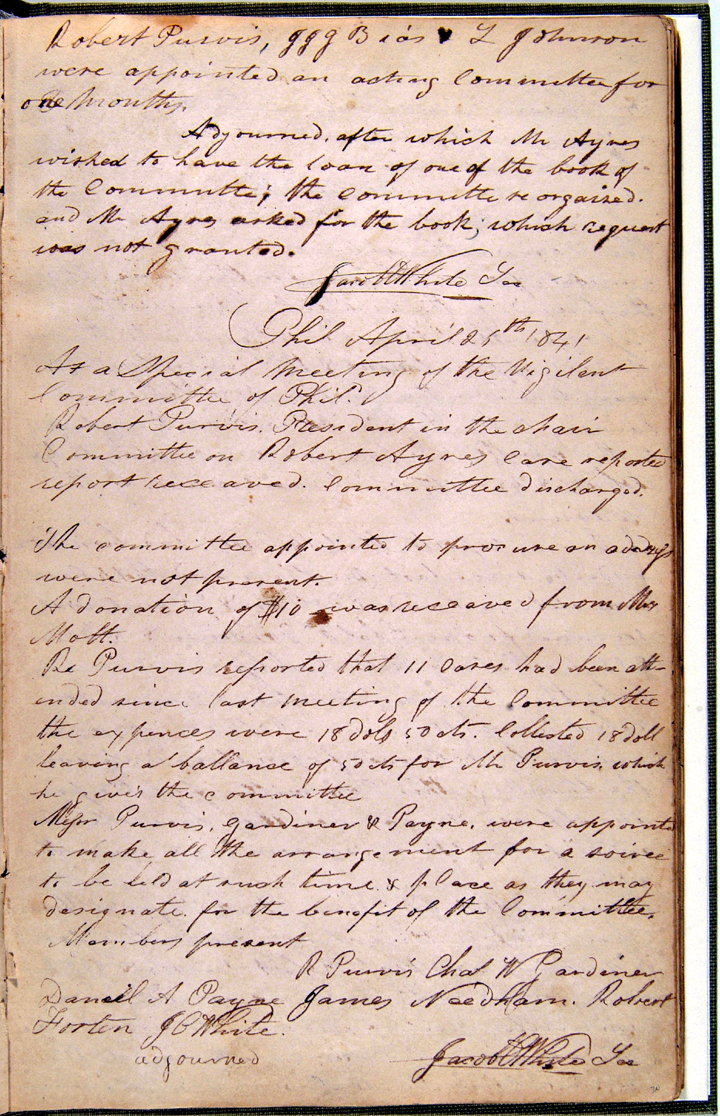 Robert Purvis, JJG Bias & L Johnson
were appointed an acting Committee for
one Months.
Adjourned. after which Mr Ayres
wished to have the loan of one of the book of
the Committe; the committe reorgaized.
and Mr Ayres asked for the book; which request
was not granted.
Jacob C White Sec
Phil April 25th 1841
At a Special Meeting of the Vigilent
Committee of Phil.
Robert Purvis. President in the chair
Committee on Robert Ayres Case reported
report receaved. Committee discharged.
The committee appointed to procure an
were not present.
A donation of $10 was receaved from
Mott.
Purvis reported that 11 Cases had been att-
ended since last meeting of the Committee
the expences were 18 dols 50 cts. Collected 18 doll
leaving a ballance of 50 cts for Mr Purvis. which
he gives the committee
Messr Purvis, Gardiner & Payne. were appointed
to make all the arrangement for a soiree
to be held at such time & place as they may
designate. for the benefit of the Committee.
Members present
R Purvis Chas W Gardiner
Daniel A Payne James Needham. Robert
Forten J C White.
adjourned
Jacob C White Sec